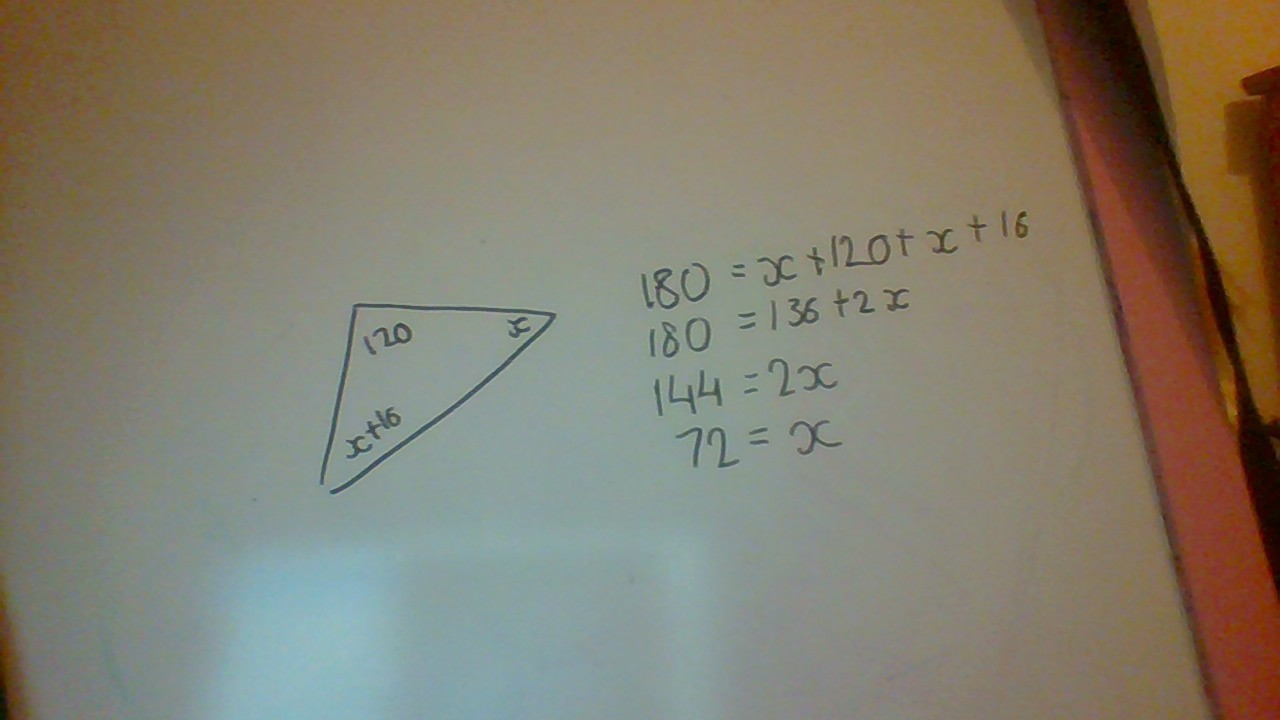 120
x
x+16
180 = x+120+x+16
180 = 136+2x
144 = 2x
72 = x